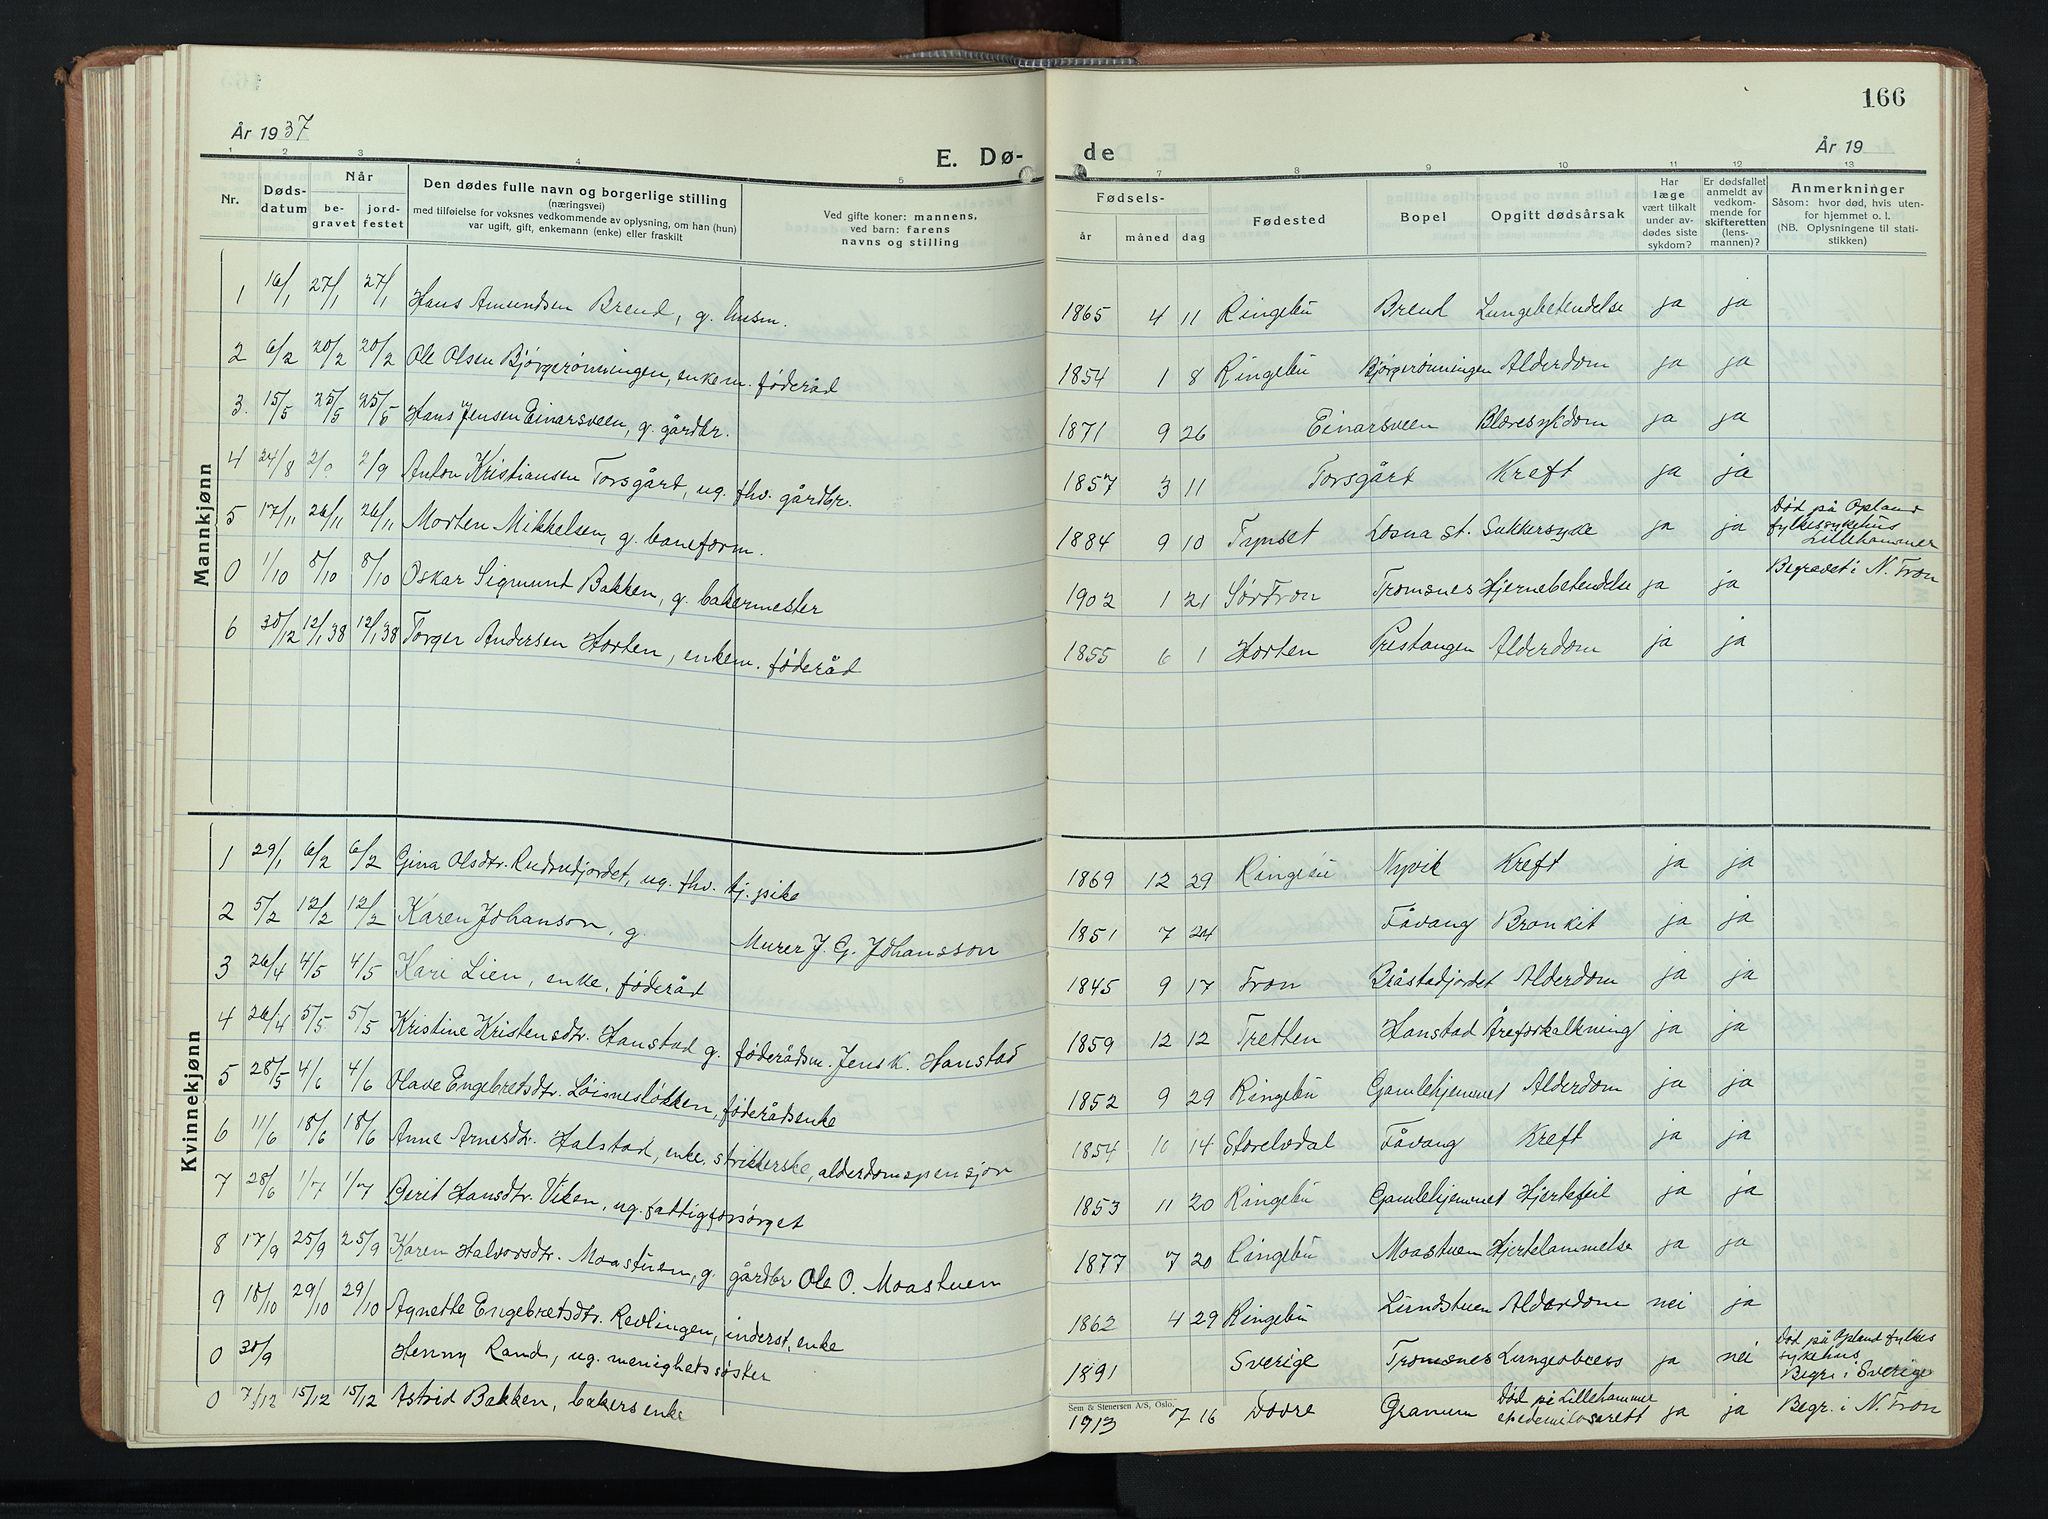 166
År 1937
E. Dø- de
År 19
1 2 3 4 5 7 8 9 10 11 12 13
Nr. Dødsdatum Når begravet jordfestet
Den dødes fulle navn og borgerlige stilling
(næringsvei)
med tilføielse for voksnes vedkommende av oplysning, om han (hun)
var ugift, gift, enkemann (enke) eller fraskilt
Ved gifte koner: mannens,
ved barn: farens
navns og stilling
Fødsels- år måned dag
Fødested
Bopel
Opgitt dødsårsak
Har læge vært tilkalt under avdødes siste sykdom?
Er dødsfallet anmeldt av vedkommende for skifteretten (lensmannen)?
Anmerkninger
Såsom: hvor død, hvis utenfor hjemmet o. l.
(NB. Oplysningene til statistikken)
Mannkjønn
1 16/1 27/1 27/1 Hans Amundsen Brend, g. husm. 1865 4 11 Ringebu Brend Lungebetendelse ja ja
2 6/2 20/2 20/2 Ole Olsen Bjørgerønningen, enkem. føderåd 1854 1 8 Ringebu Bjørgerønningen Alderdom ja ja
3. 15/5 25/5 25/5 Hans Jensen Einarsveen, g. gårdbr. 1871 9 26 Einarsveen Blæresykdom ja ja
4 24/8 2/9 2/9 Anton Kristiansen Torsgårt, ug. fhv. gårdbr. 1857 3 11 Torsgårt Kreft ja ja
5 17/11 26/11 26/11 Morten Mikkelsen, g. baneform. 1884 9 10 Tynset Losna st. Sukkersyke ja ja Død på Opland fylkessykehus Lillehammer
0 1/10 8/10 8/10 Oskar Sigmund Bakken, g. bakermester 1902 1 21 Sør Fron Tromsnes Hjernebetendelse ja ja Begravet i N. Fron
6 30/12 12/1 38 12/1 38 Torger Andersen Horten, enkem. føderåd 1855 6 1 Horten Prestangen Alderdom ja ja
Kvinnekjønn
1 29/1 6/2 6/2 Gina Olsdtr. Rudsudjordet, ug. fhv. tj. pike 1869 12 29 Ringebu Nyvik Kreft ja ja
2 5/2 12/2 12/2 Karen Johanson, g. Murer J. G. Johansson 1851 7 24 Fåvang Bronkit ja ja
3 26/4 4/5 4/5 Kari Lien, enke, føderåd 1845 9 17 Fron Bråstadjordet Alderdom ja ja
4 26/4 5/5 5/5 Kristine Kristensdtr. Hanstad g. føderådsm. Jens K. Hanstad 1859 12 12 Tretten Hanstad Åreforkalkning ja ja
5 28/5 4/6 4/6 Olave Engebretsdtr. Løisnesløkken, føderådsenke 1852 9 29 Ringebu Gamlehjemmet Alderdom ja ja
6 11/6 18/6 18/6 Anne Arnesdtr. Halstad, enke. strikkerske, alderdomspensjon 1854 10 14 Storelvdal Fåvang Kreft ja ja
7 28/6 1/7 1/7 Berit Hansdtr. Viken, ug. fattigforsørget 1853 11 20 Ringebu Gamlehjemmet Hjertefeil ja ja
8 17/9 25/9 25/9 Karen Halvorsdtr. Moastuen, g. gårdbr Ole O. Moastuen 1877 7 20 Ringebu Moastuen Hjertelammelse ja ja
9 18/10 29/10 29/10 Agnethe Engebretsdtr. Revlingen, inderst, enke 1862 4 29 Ringebu Lundstuen Alderdom nei ja
0 30/9 Henny Rand, ug. menighetssøster 1891 Sverige Tromsnes Lungeabcess ja nei Død på Opland fylkes sykehus Begr. i Sverige
0 7/12 15/12 15/12 Astrid Bakken, bakersenke 1913 7 16 Dovre Granum Død på Lillehammer epidemilasarett ja ja Begr. i N. Fron
Sem & Stenersen A/S, Oslo.